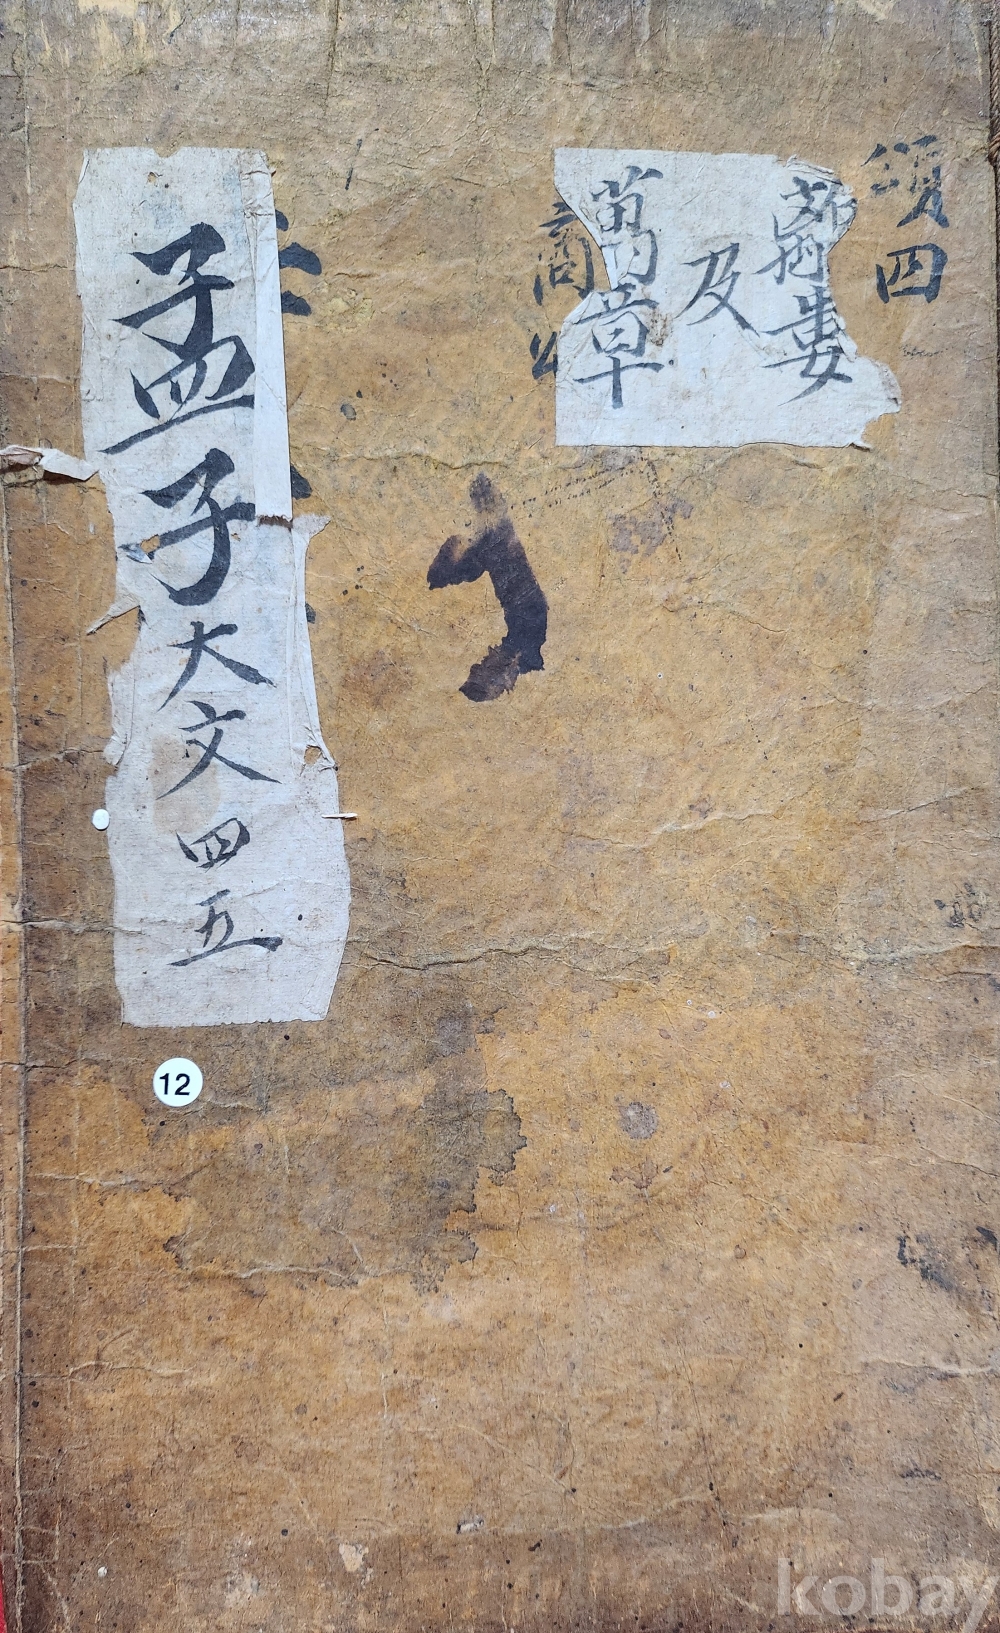 頌四
離婁
及
萬章
商
孟子大文四五
12
kobay